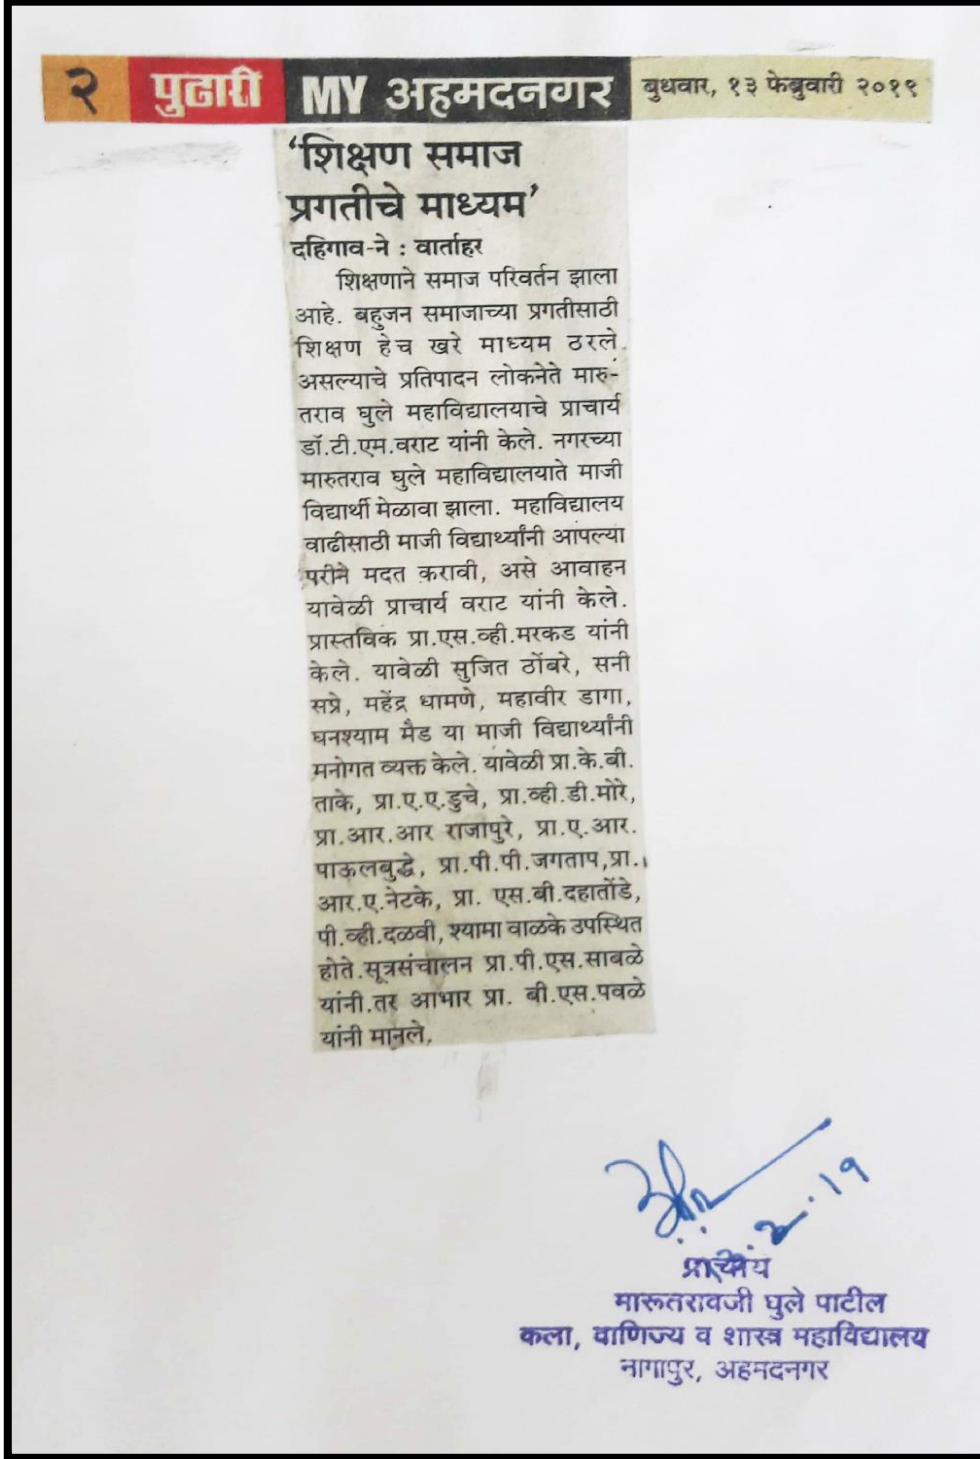 २ पुढारी MY अहमदनगर बुधवार, १३ फेब्रुवारी २०१९
‘शिक्षण समाज
प्रगतीचे माध्यम’
दहिगाव-ने : वार्ताहर
शिक्षणाने समाज परिवर्तन झाला
आहे. बहुजन समाजाच्या प्रगतीसाठी
शिक्षण हेच खरे माध्यम ठरले
असल्याचे प्रतिपादन लोकनेते मारु-
तराव घुले महाविद्यालयाचे प्राचार्य
डॉ.टी.एम.वराट यांनी केले. नगरच्या
मारुतराव घुले महाविद्यालयाते माजी
विद्यार्थी मेळावा झाला. महाविद्यालय
वाढीसाठी माजी विद्यार्थ्यांनी आपल्या
परीने मदत करावी, असे आवाहन
यावेळी प्राचार्य वराट यांनी केले.
प्रास्तविक प्रा.एस.व्ही.मरकड यांनी
केले. यावेळी सुजित ठोंबरे, सनी
सप्रे, महेंद्र धामणे, महावीर डागा,
घनश्याम मैड या माजी विद्यार्थ्यांनी
मनोगत व्यक्त केले. यावेळी प्रा.के.बी.
ताके, प्रा.ए.ए.डुचे, प्रा.व्ही.डी.मोरे,
प्रा.आर.आर राजापुरे, प्रा.ए.आर.
पाऊलबुद्धे, प्रा.पी.पी.जगताप,प्रा.
आर.ए.नेटके, प्रा. एस.बी.दहातोंडे,
पी.व्ही.दळवी, श्यामा वाळके उपस्थित
होते.सूत्रसंचालन प्रा.पी.एस.साबळे
यांनी.तर आभार प्रा. बी.एस.पवळे
यांनी मानले.
प्राचार्य
मारूतरावजी घुले पाटील
कला, वाणिज्य व शास्त्र महाविद्यालय
नागापुर, अहमदनगर